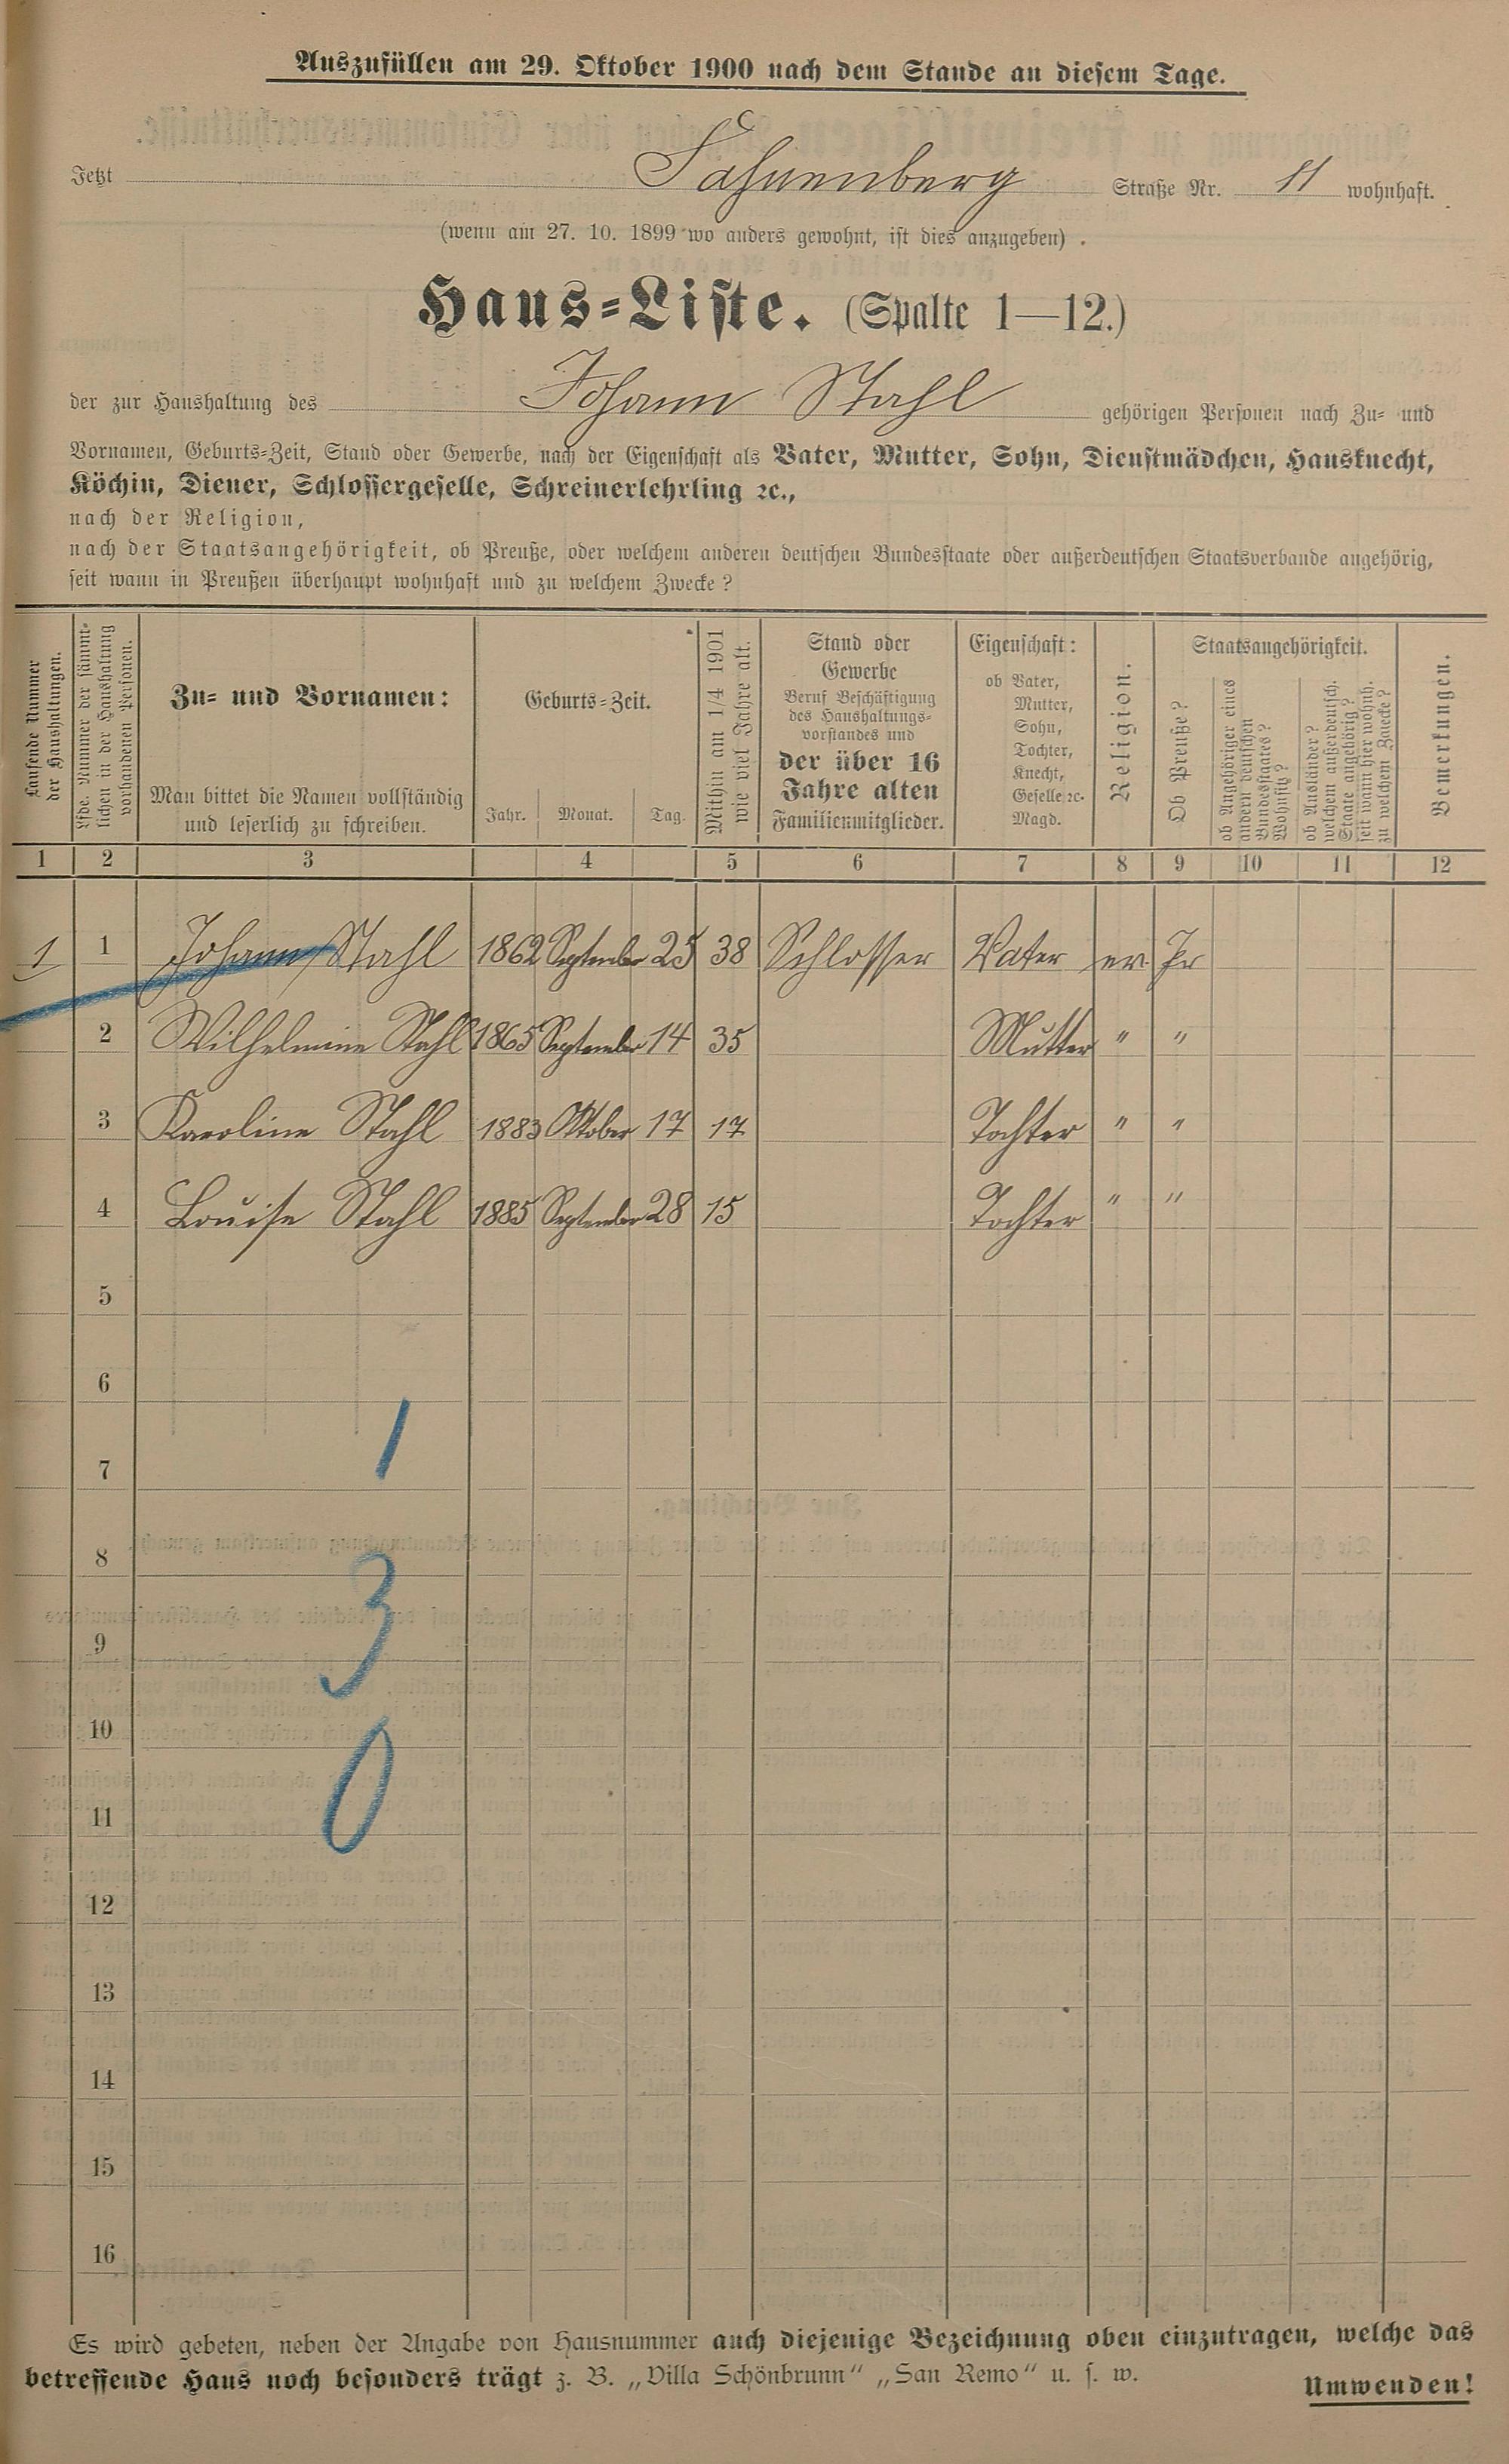 Auszufüllen am 29. Oktober 1900 nach dem Stande an diesem Tage.
Jetzt Hahnenberg Straße Nr. 11 wohnhaft.
(wenn am 27. 10. 1899 wo anders gewohnt, ist dies anzugeben) .
Haus-Liste. (Spalte 1—12.)
der zur Haushaltung des Johann Stahl gehörigen Personen nach Zu- und
Vornamen, Geburts-Zeit, Stand oder Gewerbe, nach der Eigenschaft als Vater, Mutter, Sohn, Dienstmädchen, Hausknecht,
Köchin, Diener, Schlossergeselle, Schreinerlehrling ꝛc.,
nach der Religion,
nach der Staatsangehörigkeit, ob Preuße, oder welchem anderen deutschen Bundesstaate oder außerdeutschen Staatsverbande angehörig,
seit wann in Preußen überhaupt wohnhaft und zu welchem Zwecke ?
Laufende Nummer
der Haushaltungen.
Lfde. Nummer der sämmt-
lichen in der Haushaltung
vorhandenen Personen.
Zu- und Vornamen:
Man bittet die Namen vollständig
und leserlich zu schreiben.
Geburts-Zeit.
Jahr. Monat. Tag.
Mithin am 1/4 1901
wie viel Jahre alt.
Stand oder
Gewerbe
Beruf Beschäftigung
des Haushaltungs-
vorstandes und
der über 16
Jahre alten
Familienmitglieder.
Eigenschaft:
ob Vater,
Mutter,
Sohn,
Tochter,
Knecht,
Geselle ꝛc.
Magd.
Religion.
Staatsangehörigkeit.
Ob Preuße ?
ob Angehöriger eines
andern deutschen
Bundesstaates ?
Wohnsitz ?
ob Ausländer ?
welchem außerdeutsch.
Staate angehörig ?
seit wann hier wohnh.
zu welchem Zwecke ?
Bemerkungen.
1 2 3 4 5 6 7 8 9 10 11 12
1 1 Johann Stahl 1862 September 25 38 Schlosser Vater ev Pr
2 Wilhelmine Stahl 1865 September 14 35 Mutter " "
3 Karoline Stahl 1883 Oktober 17 17 Tochter " "
4 Louise Stahl 1885 September 28 15 Tochter " "
5
6
1
7
8
3
9
10
0
11
12
13
14
15
16
Es wird gebeten, neben der Angabe von Hausnummer auch diejenige Bezeichnung oben einzutragen, welche das
betreffende Haus noch besonders trägt z. B. „Villa Schönbrunn“ „San Remo“ u. s. w.
Umwenden!